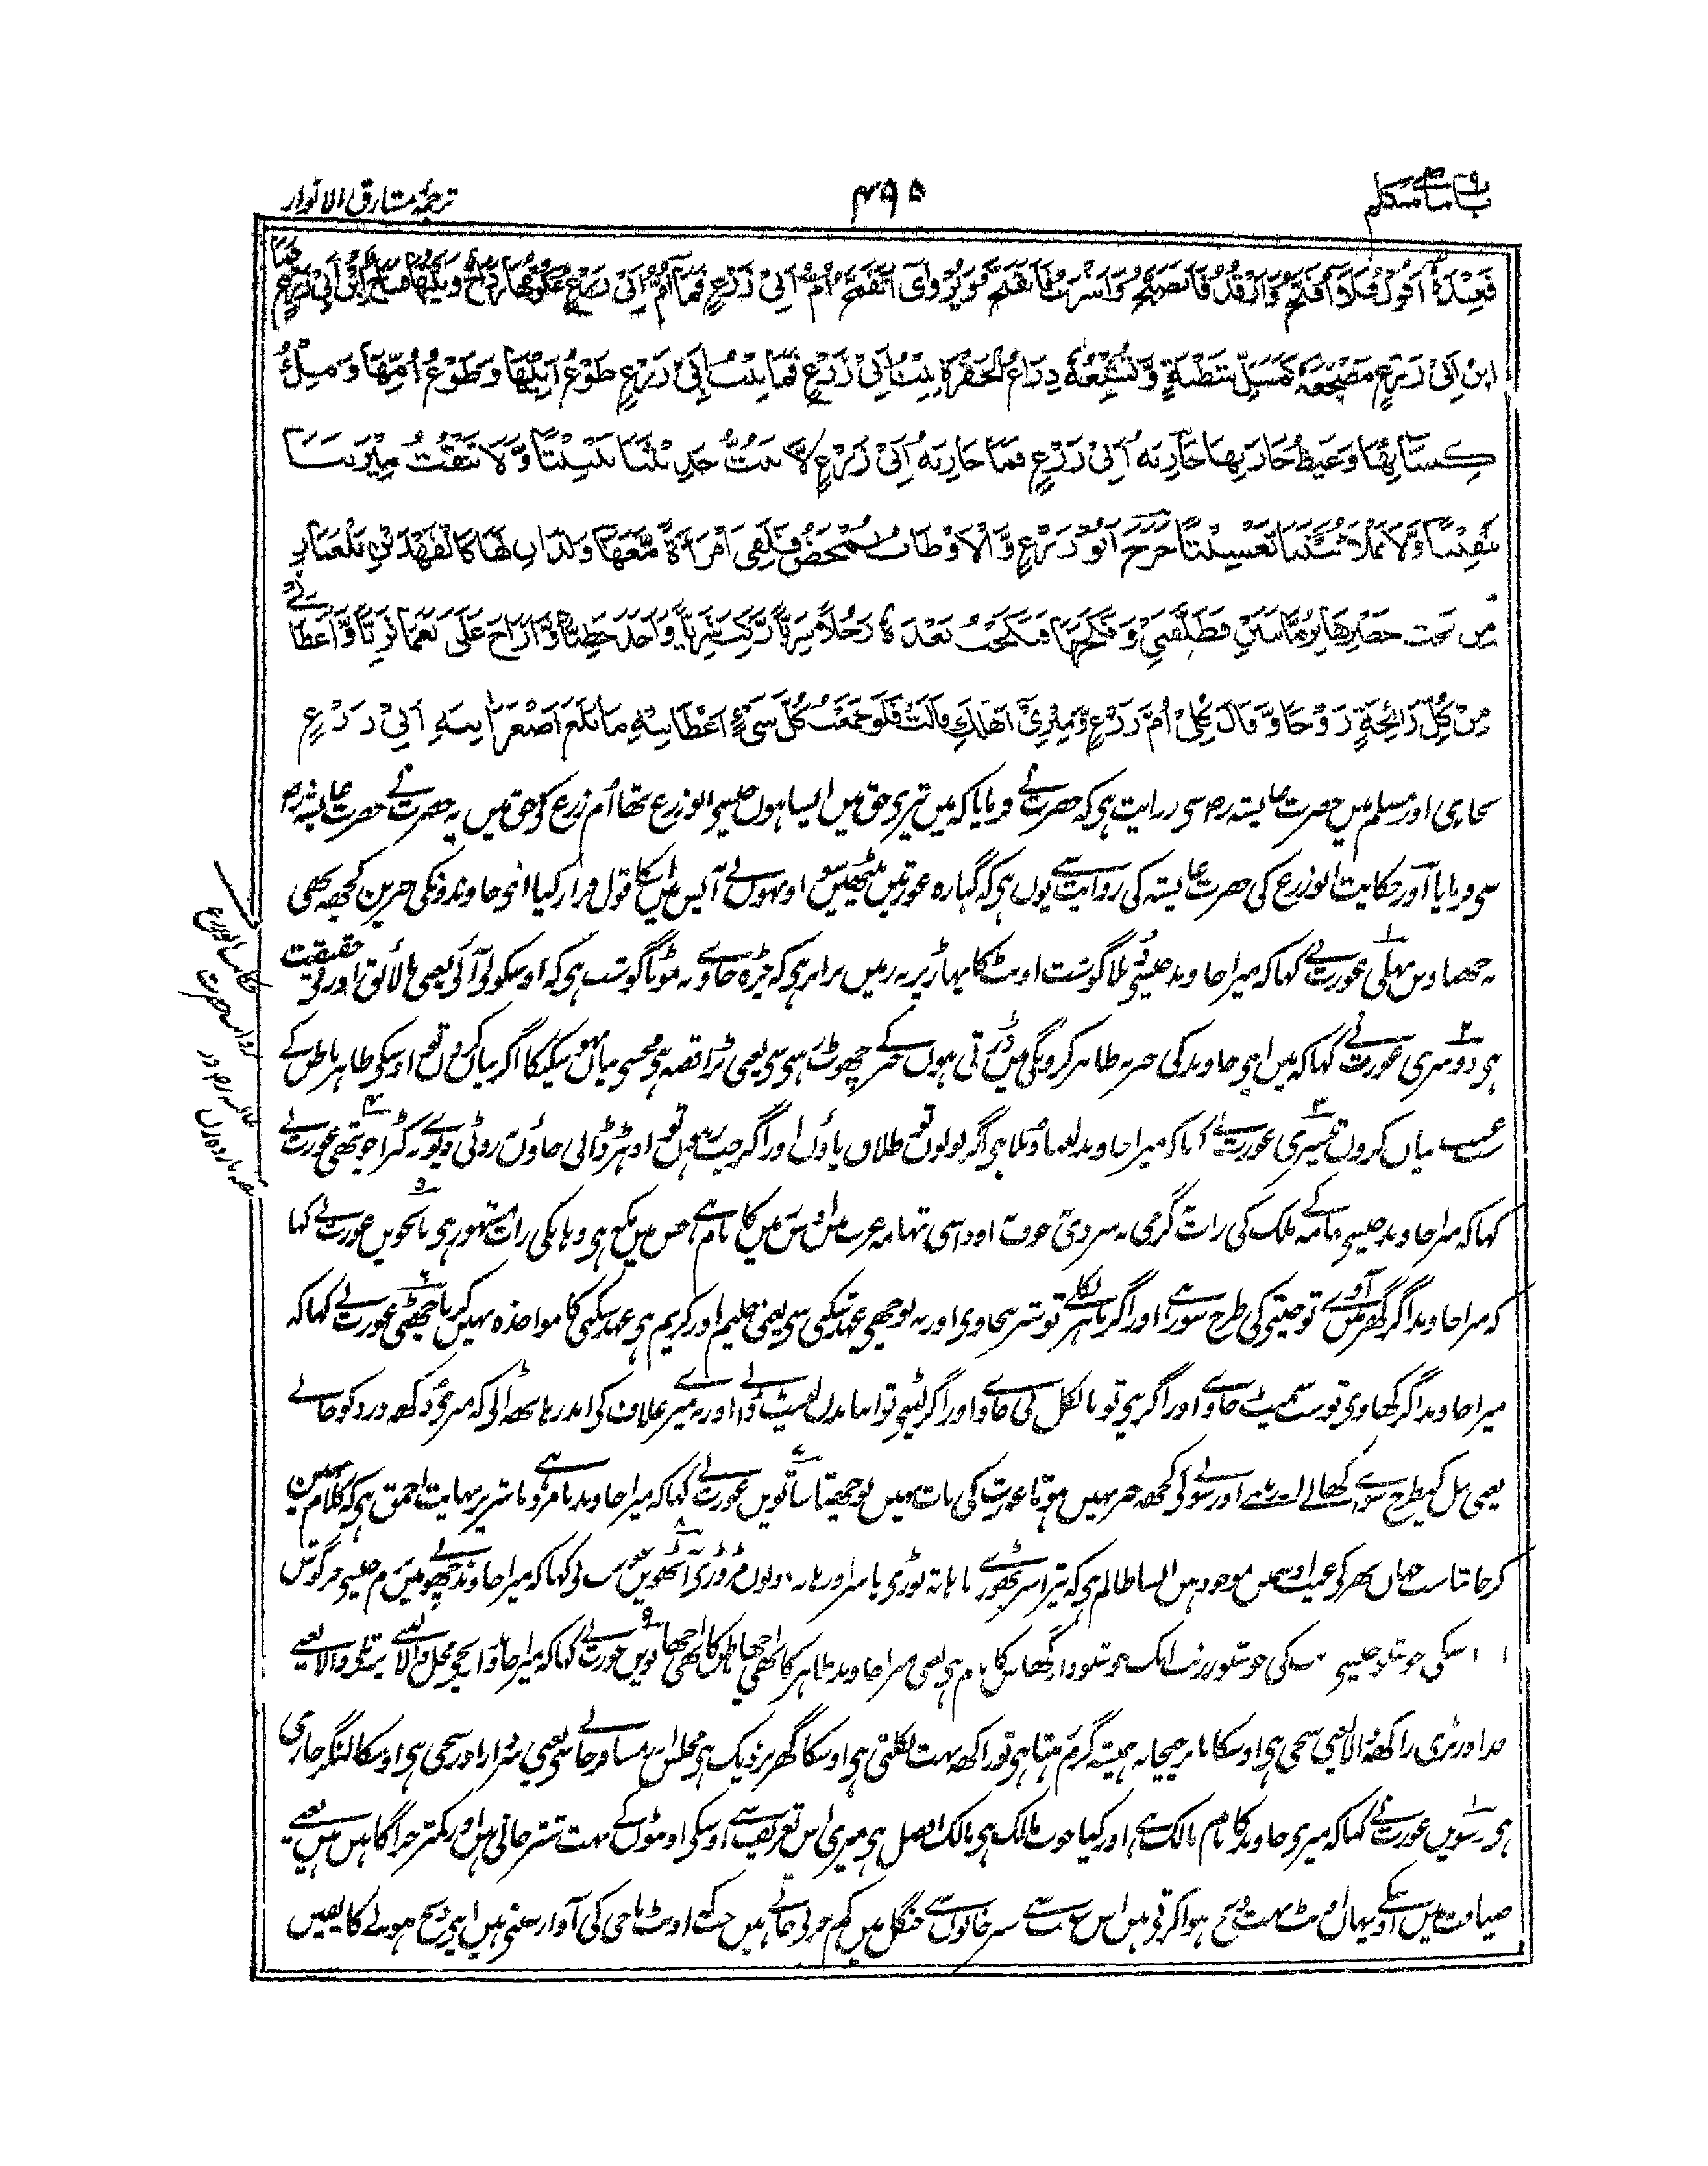 باب ماضی متکلم ۴۹۵ ترجمۂ مشارق الانوار
فَعِنْدَهٗ اَقُوْلُ فَلَا اُقَبَّحُ وَاَرْقُدُ فَاَتَصَبَّحُ وَاَشْرَبُ فَاَتَقَنَّحُ وَيُرْوٰى اَتَقَمَّحُ اُمُّ اَبِىْ زَرْعٍ فَمَا اُمُّ اَبِىْ زَرْعٍ عُكُوْمُهَا رَدَاحٌ وَبَيْتُهَا فَسَاحٌ اِبْنُ اَبِىْ زَرْعٍ فَمَا
ابْنُ اَبِىْ زَرْعٍ مَضْجَعُهٗ كَمَسَلِّ شَطْبَةٍ وَّتُشْبِعُهٗ ذِرَاعُ الْجَفْرَةِ بِنْتُ اَبِىْ زَرْعٍ فَمَا بِنْتُ اَبِىْ زَرْعٍ طَوْعُ اَبِيْهَا وَطَوْعُ اُمِّهَا وَمِلْءُ
كِسَائِهَا وَغَيْظُ جَارَتِهَا جَارِيَةُ اَبِىْ زَرْعٍ فَمَا جَارِيَةُ اَبِىْ زَرْعٍ لَا تَبُثُّ حَدِيْثَنَا تَبْثِيْثًا وَّلَا تُنَقِّثُ مِيْرَتَنَا
تَنْقِيْثًا وَّلَا تَمْلَأُ بَيْتَنَا تَعْشِيْشًا خَرَجَ اَبُوْ زَرْعٍ وَّالْاَوْطَابُ تُمْخَضُ فَلَقِىَ امْرَاَةً مَّعَهَا وَلَدَانِ لَهَا كَالْفَهْدَيْنِ يَلْعَبَانِ
مِنْ تَحْتِ خَصْرِهَا بِرُمَّانَتَيْنِ فَطَلَّقَنِىْ وَنَكَحَهَا فَنَكَحْتُ بَعْدَهٗ رَجُلًا سَرِيًّا رَكِبَ شَرِيًّا وَّاَخَذَ خَطِّيًّا وَّاَرَاحَ عَلَىَّ نَعَمًا ثَرِيًّا وَّاَعْطَانِىْ
مِنْ كُلِّ رَائِحَةٍ زَوْجًا وَّقَالَ كُلِىْ اُمَّ زَرْعٍ وَّمِيْرِىْ اَهْلَكِ قَالَتْ فَلَوْ جَمَعْتُ كُلَّ شَىْءٍ اَعْطَانِيْهِ مَا بَلَغَ اَصْغَرَ اٰنِيَةِ اَبِىْ زَرْعٍ
بخاری اور مسلم میں حضرت عایشہ رض سی روایت ہی کہ حضرت نے فرمایا کہ میں تیری حق میں ایسا ہوں جیسی ابو زرع تھا اُم زرع کی حق میں یہ حضرت نے حضرت عایشہ رض
سی فرمایا اور حکایت ابو زرع کی حضرت عایشہ کی روایت سے یوں ہی کہ گیارہ عورتیں بیٹھیں سو اونہوں نے آپس میں اسکا قول قرار کیا اپنی خاوندونکی خبرین کچھہ بھی
نہ چھپاویں پہلی عورت نے کہا کہ میرا خاوند جیسی دُبلا گوشت اونٹ کا پہاڑ پر نہ زمیں برابر ہی کہ چڑہ جاوے نہ موٹا گوشت ہی کہ اوسکو لی آئی یعنی نالائق اور بی حقیقت
ہی دوسری عورت نے کہا کہ میں اپنی خاوند کی خبر نہ ظاہر کرونگی میں ڈرتی ہوں خبر کے چھوٹ رہنی سی یعنی بڑا قصہ ہی مجھسی بیاں نہو سکیگا اگر بیاں کروں تو اوسکی ظاہر باطن کے
عیب بیاں کروں تیسری عورت نے کہا کہ میرا خاوند لنبا دُبلا ہی اگر بولوں تو طلاق پاؤں اور اگر چپ رہوں تو اوہڑ ڈالی جاؤں روٹی دیوے نہ کپڑا چوتھی عورت نے
کہا کہ میرا خاوند جیسی تہامہ کے ملک کی رات نہ گرمی نہ سردی نہ خوف نہ اوداسی تہامہ عرب میں اوس زمیں کا نام ہے جس میں مکہ ہی وہانکی رات مشہور ہی پانچویں عورت نے کہا
کہ میرا خاوند اگر گھر میں آوے تو چیتی کی طرح سو رہے اور اگر باہر نکلے تو شیر بنجاوی اور نہ پوچھی عہد شکنی سی یعنی حلیم اور کریم ہی عہد شکنی کا مواخذہ نہیں کرتا چھٹی عورت نے کہا کہ
میرا خاوند اگر کھاوی تو سب سمیٹ جاوے اور اگر پیٔ تو بالکل پی جاوے اور اگر لیٹے تو اپنا بدن لپیٹ لے اور نہ میرے غلاف کی اندر ہاتھہ ڈالی کہ میری دُکھہ درد کو جانے
یعنی بیل کیطرح سواے کھانے اور سونے کی کچھہ خبر نہیں ہوتی عورت کی بات نہیں پوچھتا ساتویں عورت نے کہا کہ میرا خاوند نامرد یا شریر نہایت احمق ہی کہ کلام نہیں
کر جانتا سب جہاں بھر کی عیب اوسمیں موجود ہیں ایسا ظالم ہی کہ تیرا سر پھوڑے یا ہاتہ توڑی یا سر اور ہاتہ دونوں مروڑی آٹھویں عورت نی کہا کہ میرا خاوند چھونے میں نرم جیسی خرگوش
اسکی خوشبو جیسی زرنب کی خوشبو زرنب ایک خوشبودار گھاس کا نام ہی یعنی میرا خاوند ظاہر کا بھی اچھا باطن کا بھی اچھا نویں عورت نے کہا کہ میرا خاوند اونچی محل والا لنبے پرتلے والا یعنے
قداور بڑی راکھہ والا یعنی سخی ہی اوسکا باورچیخانہ ہمیشہ گرم رہتا ہی تو راکھہ بہت نکلتی ہی اوسکا گھر نزدیک ہی مجلس اور مسافر خانی سے یعنی سردار اور سخی ہی اوسکا لنگر جاری
ہی دسویں عورت نے کہا کہ میری خاوند کا نام مالک ہے اور کیا خوب مالک ہی مالک افضل ہی میری اس تعریف سے اوسکی اونٹوں کے بہت شترخانی ہیں اور کمتر چراگاہیں ہیں یعنے
ضیافت میں اوسکے یہاں اونٹ بہت ذبح ہوا کرتی ہیں اس سبب سے شترخانوں سے جنگل میں کم چرنی جاتے ہیں جبکہ اونٹ باجی کی آواز سنتی ہیں اپنی ذبح ہونے کا یقین
حکایت ابو زرع
روایت حضرت
عایشہ رض در
قصہ یازدہ زن